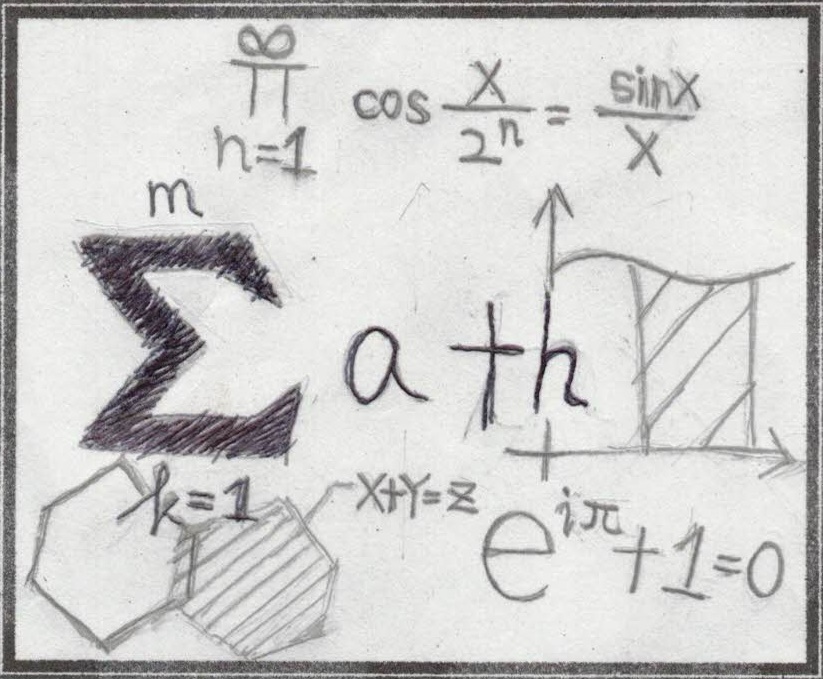 ∞
∏ cos x/2ⁿ = sinx/x
n=1
m
∑ a th
k=1
X+Y=Z
e^{iπ}+1=0